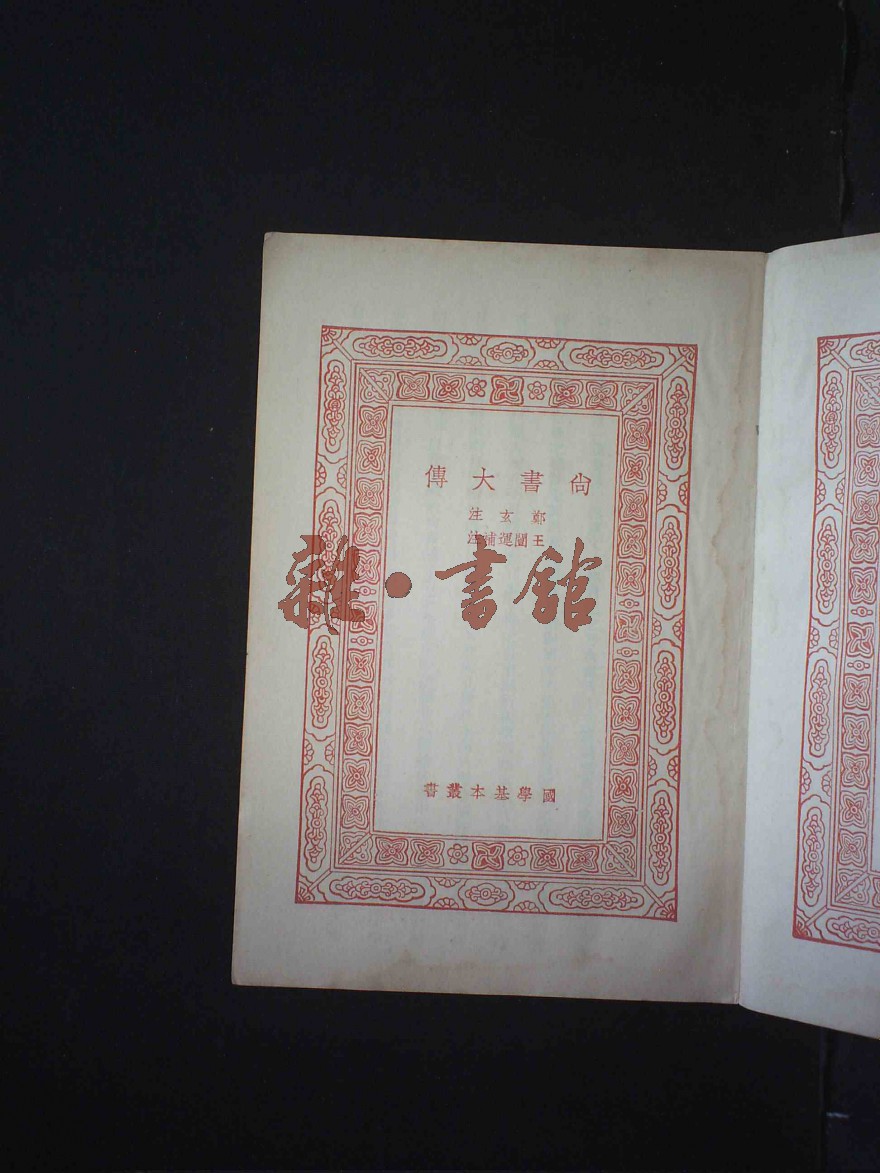 尚書大傳
鄭玄注
王闓運補注
雜·書館
國學基本叢書